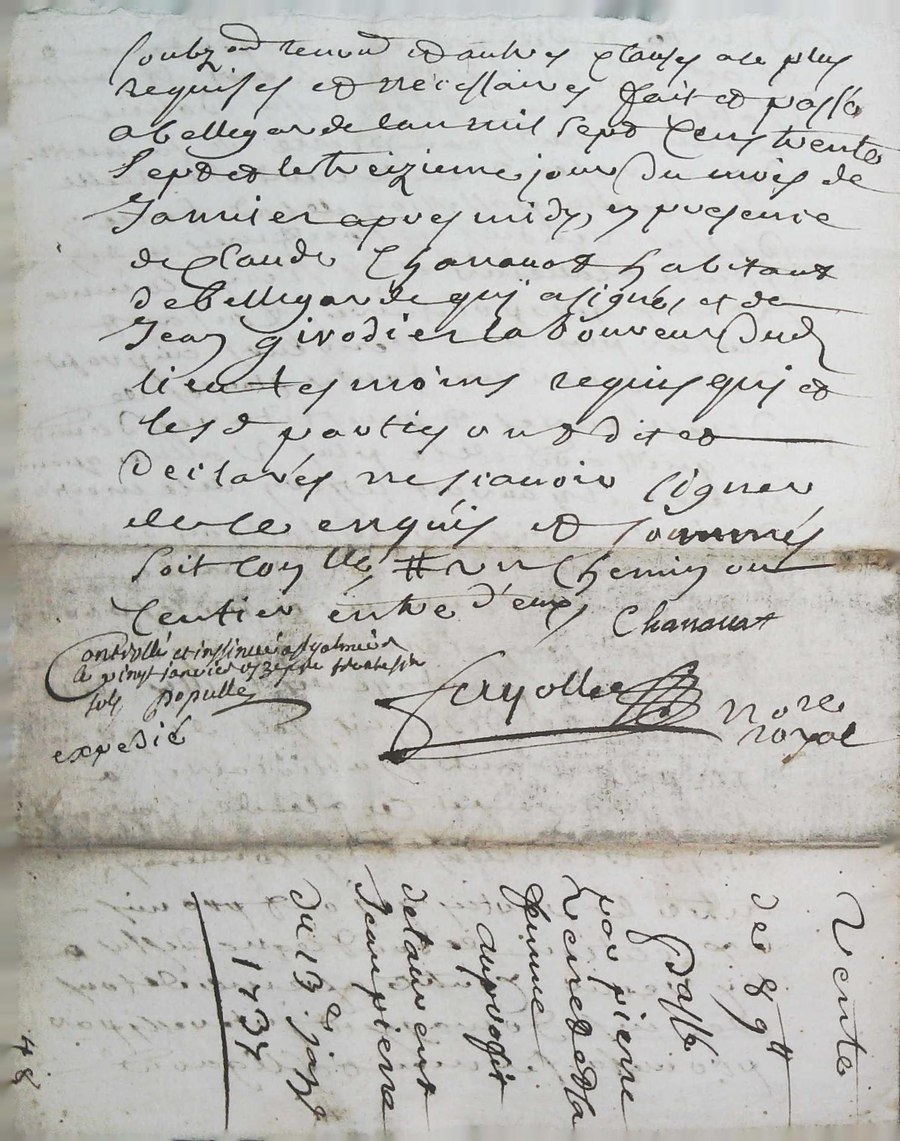 soubz and renond et autres clauses a ce plus
requises et necessaires fait et passé
a bellegarde lan mil sept cens trente
sept et le treizieme jour du mois de
Janvier apres midy, en presence
de Claude Chanauat habitant
de bellegarde qui a signé, et de
Jean girodier laboureur dud
lieu tesmoins requis qui et
lesd parties ont dit et
declarés ne scavoir signer
de ce enquis et sommés
soit # un chemin ou
sentier entre d'eux Chanauat
Controllé et insinué a St galmier
Le vingt janvier 1737 trente six
sols populle
expedié
fayolle Nore
royal
Vente
de 89tt
passée
par pierre
et sa
femme
au proffit
de laurent
Jean pierre
du 13e janr
1737
48